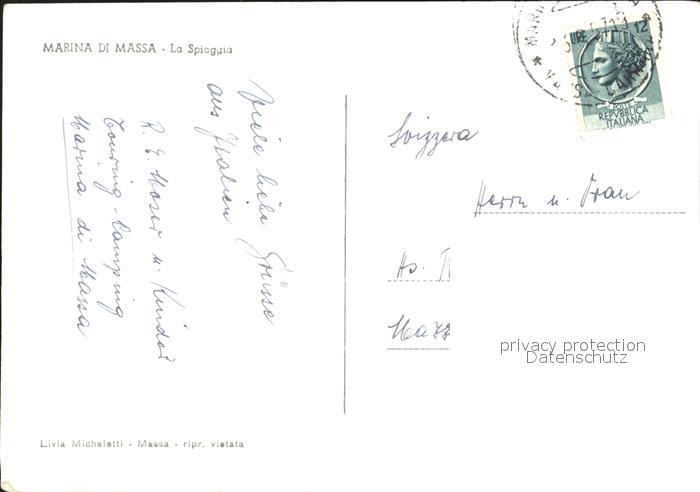 MARINA DI MASSA - La Spiaggia
Viele liebe Grüsse
aus Italien
R. E. Moser u. Kinder
Touring-Camping
Marina di Massa
Svizzera
Herrn u. Frau
Hs.
Livia Micheletti - Massa - ripr. vietata
LIRE 12
POSTE
REPVBBLICA
ITALIANA
privacy protection
Datenschutz